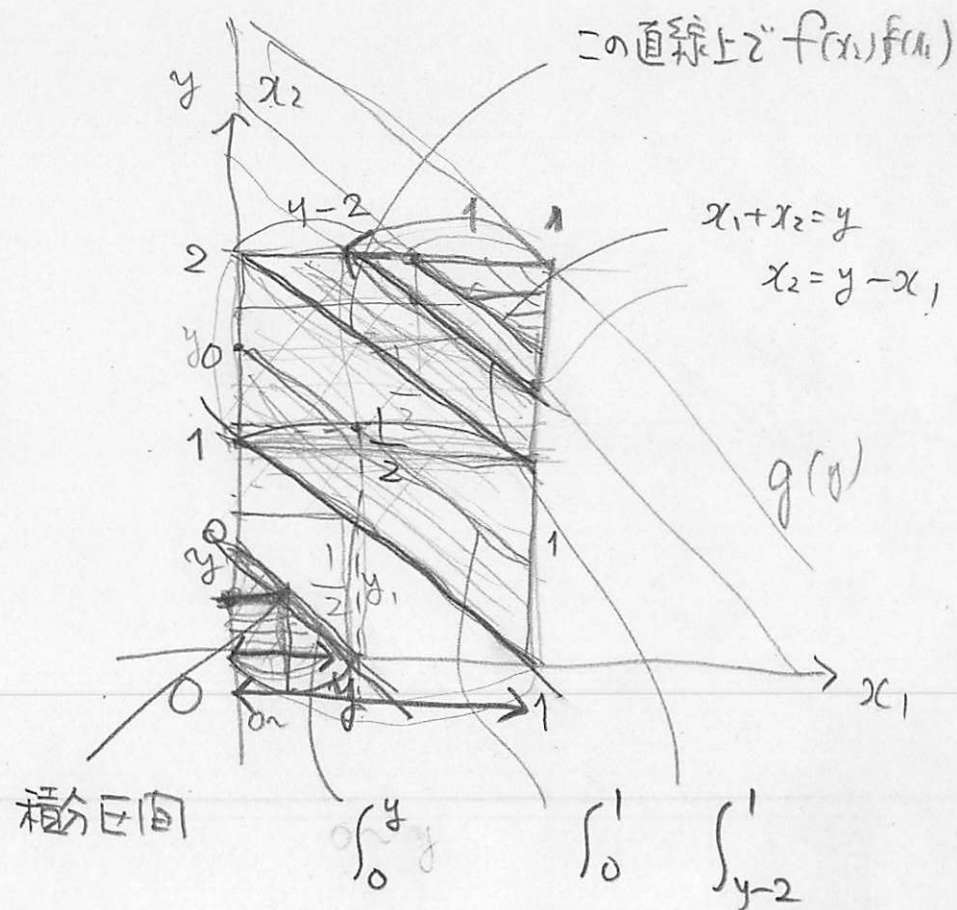 この直線上で f(x₂)f(x₁)
y x₂
y-2 1 1
x₁+x₂=y
x₂=y-x₁
2
y₀
1
1/2
g(y)
1
y
1/2 y₁
O
0~ y 1
x₁
積分区間
∫₀^y ∫₀^1 ∫_{y-2}^1